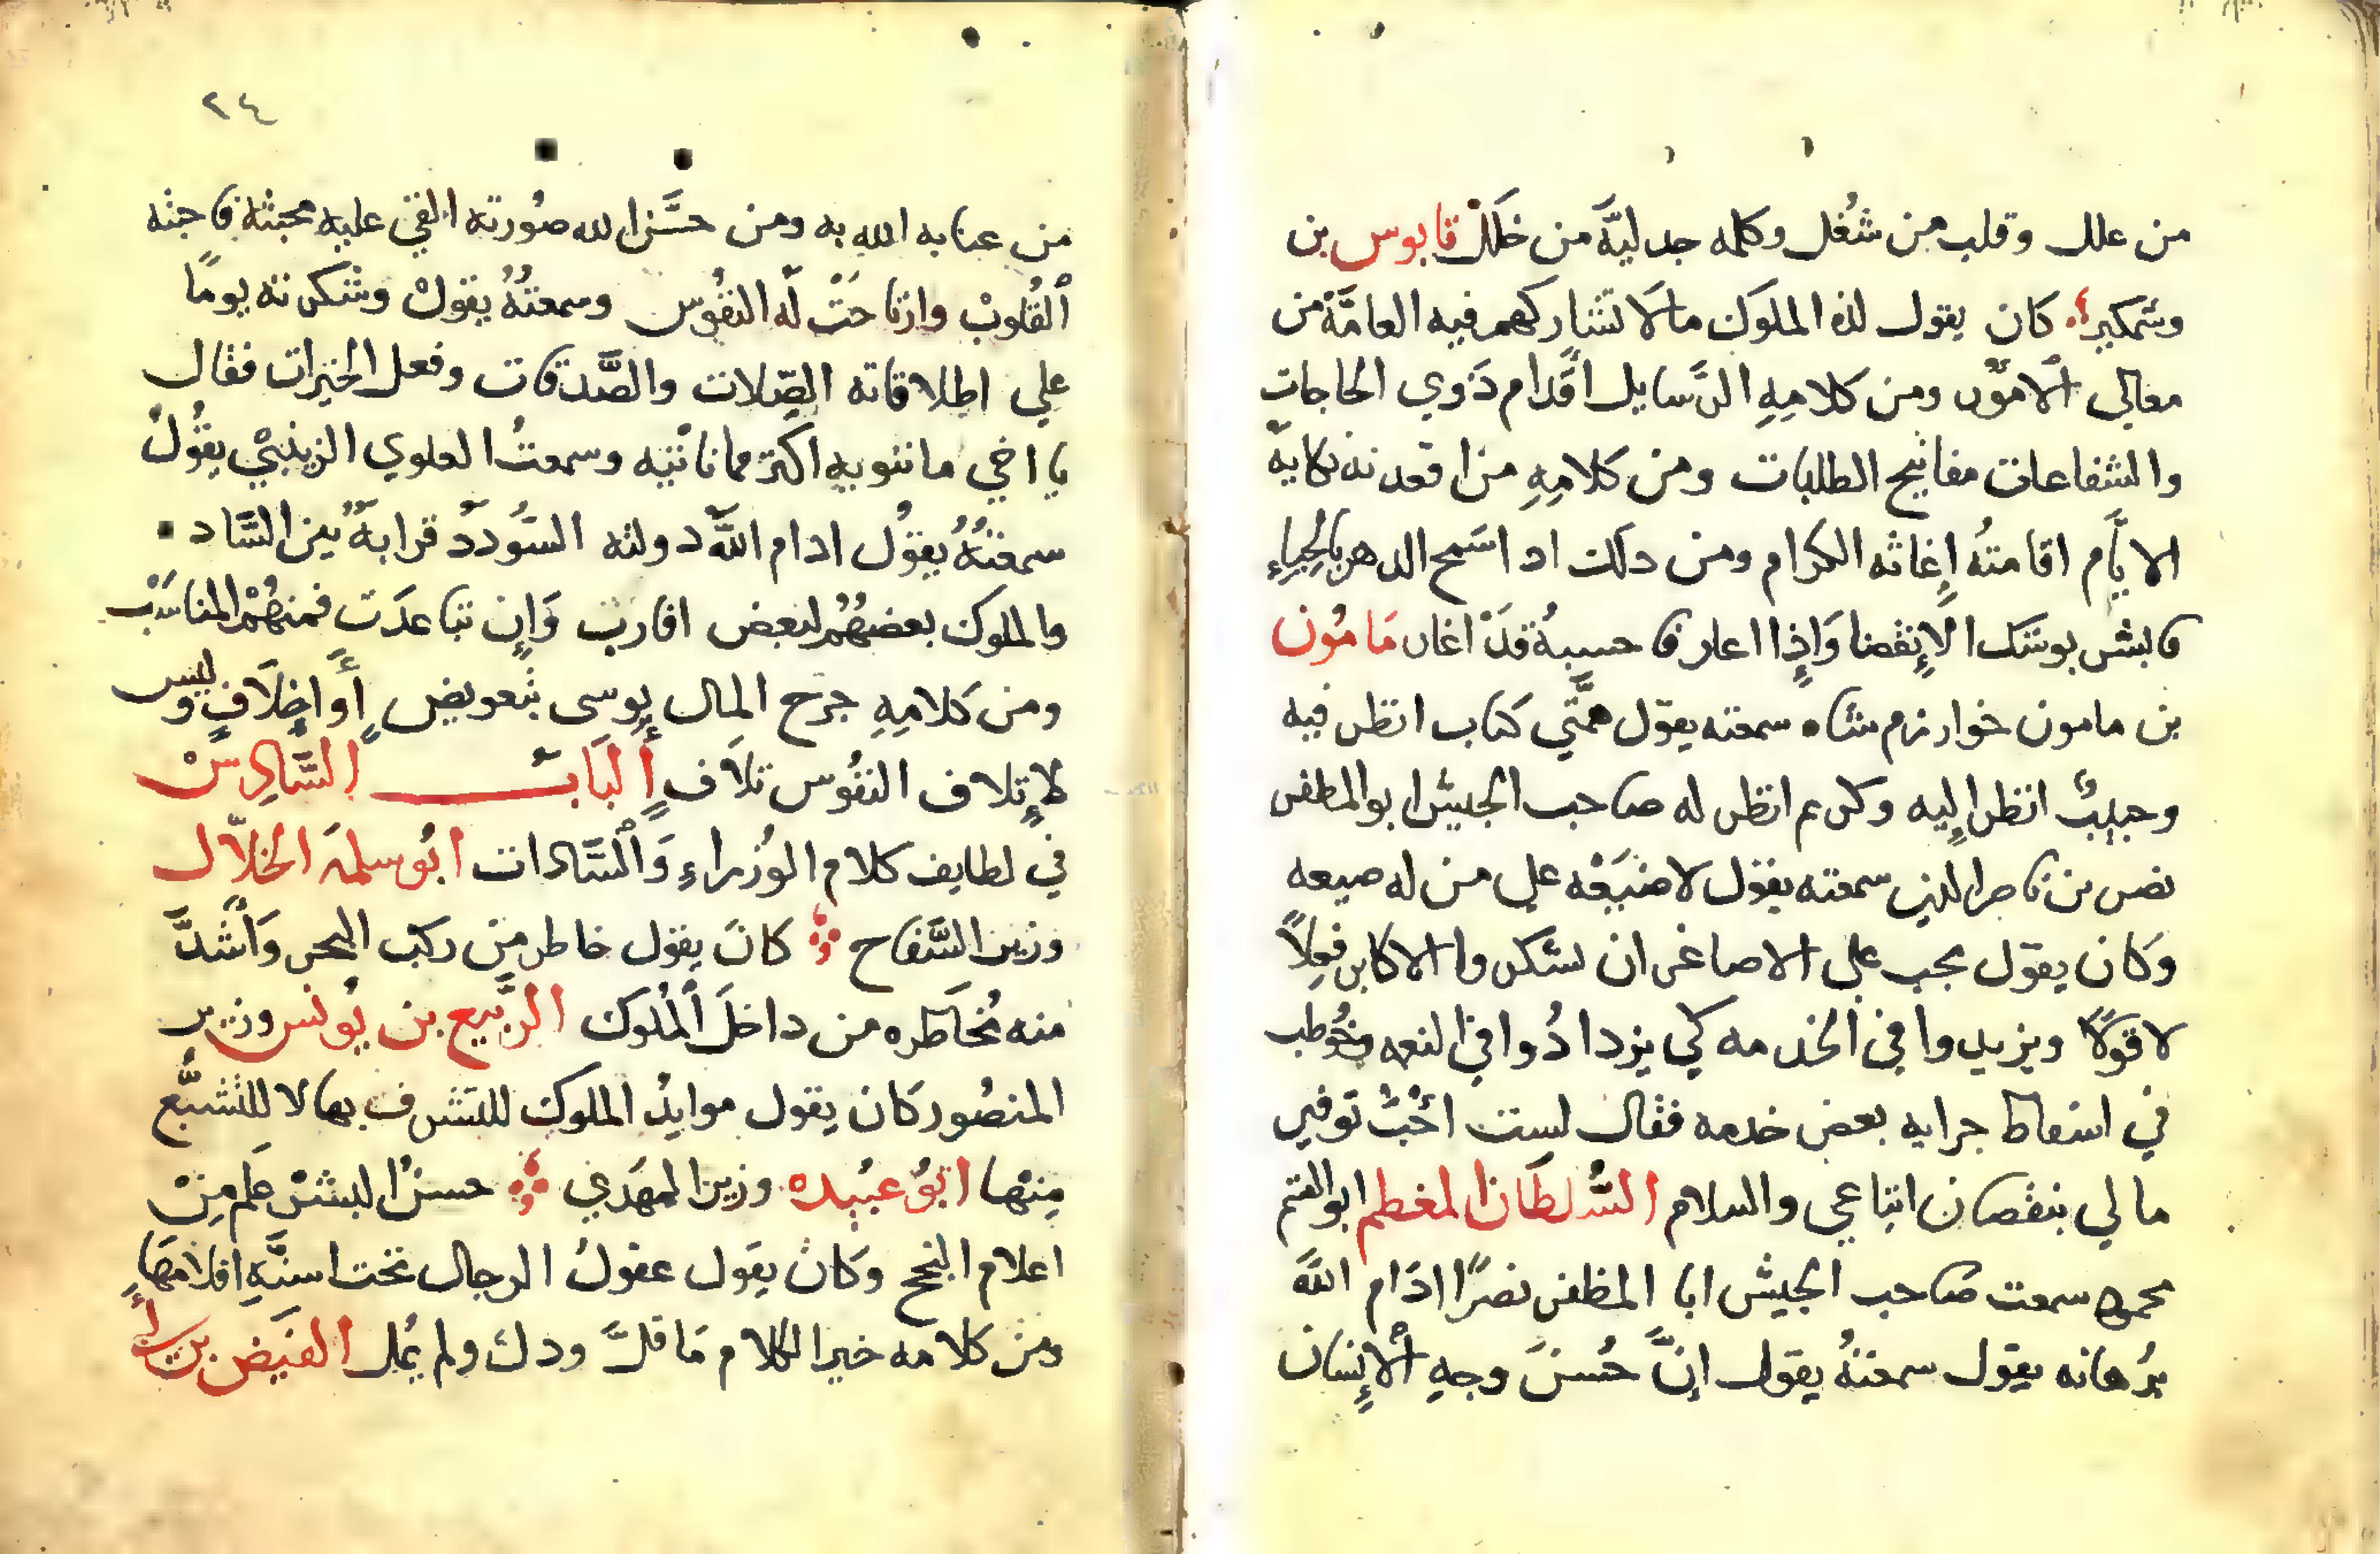 من علل وقلب من شغل وكله جد ليّه من خلل قابوس بن
وشمكير كان يقول لذه الملوك ما لا تشاركهم فيه العامّة من
معالي الامور ومن كلامه الرسايل اقدام ذوي الحاجات
والشفاعات مفاتيح الطلبات ومن كلامه من اقعدته نكاية
الايّام اقامته إغاثه الكرام ومن دلك ادا سمح الدهر بالحباء
فابشر بوشك الانقضا وإذا اعار فاحسبه قد اغار مامون
بن مامون خوارزم شاه سمعته يقول همّتي كتاب انظر فيه
وحبيب انظر إليه وكريم انظر له صاحب الجيش ابو المظفر
نصر بن ناصر الدين سمعته يقول لا ضيعه على من له صيعه
وكان يقول يجب على الاصاغر ان يشكروا الاكابر فعلاً
لا قولاً ويزيدوا في الخدمه كي يزدادوا في النعمه وخوطب
في اسقاط جرايه بعض خدمه فقال لست احب توفير
مالي بنقصان اتباعي والسلام السلطان المعظم ابو الفتح
محمود سمعت صاحب الجيش ابا المظفر نصراً ادام الله
برهانه يقول سمعته يقول انّ حسن وجه الإنسان
٢٤
من عنايه الله به ومن حسّن الله صورته القي عليه محبته فاحبته
القلوب وارتاحت له النفوس وسمعته يقول وشكرته يوماً
علي اطلاقاته الصلات والصّدقات وفعل الخيرات فقال
يا اخي ما ننويه اكثر مما ناتيه وسمعت العلوي الزينبي يقول
سمعته يقول ادام الله دولته السودد قرابة بين السّاده
والملوك بعضهم لبعض اقارب وإن تباعدت فمنهم المناسب
ومن كلامه جرح المال يوسى بتعويض أو إخلاف وليس
لإتلاف النفوس تلاف الباب السّادس
في لطايف كلام الوزراء والسّادات ابو سلمة الخلّال
وزير السّفاح كان يقول خاطر من ركب البحر واشدّ
منه مخاطره من داخل الملوك الرّبيع بن يونس وزير
المنصور كان يقول موايد الملوك للتشرف بها لا للتشبّع
منها ابو عبيده وزير المهدي حسن البشر علم من
اعلام النجح وكان يقول عقول الرجال تحت اسنّة اقلامها
ومن كلامه خير الكلام ما قلّ ودل ولم يمل الفيض بن أبي